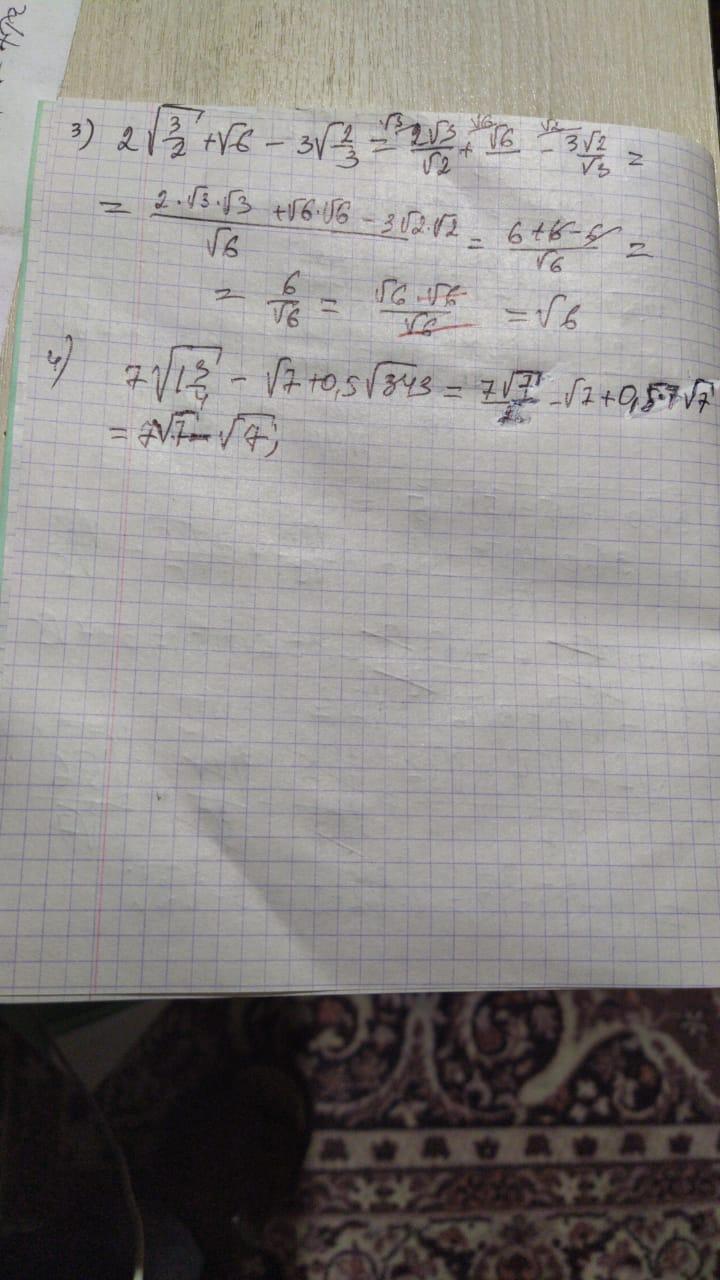 3) 2√(3/2) + √6 - 3√(2/3) = √3 2√3/√2 + √6 √6/ - √2 3√2/√3 =
= (2·√3·√3 + √6·√6 - 3√2·√2)/√6 = (6+6-6)/√6 =
= 6/√6 = (√6·√6)/√6 = √6
4) 7√(1 3/4) - √7 + 0,5√343 = 7√7/2 - √7 + 0,5·7√7
= 7√7 - √7;